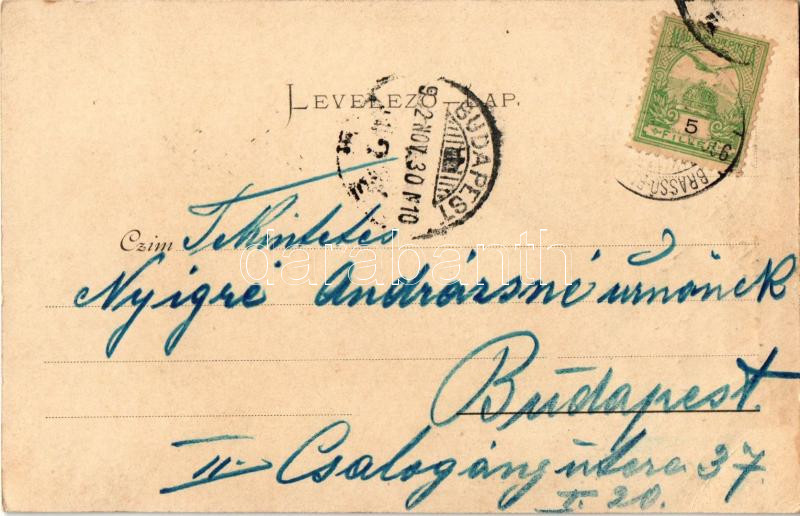 MAGYAR KIR. POSTA
5
FILLÉR
BRASSÓ
LEVELEZŐ-LAP.
BUDAPEST
902 NOV. 30 N10
Czim Tekintetes
Nyigré Andrásné úrnőnek
Budapest
II. Csalogány útcza 37
I. 20.
darabanth